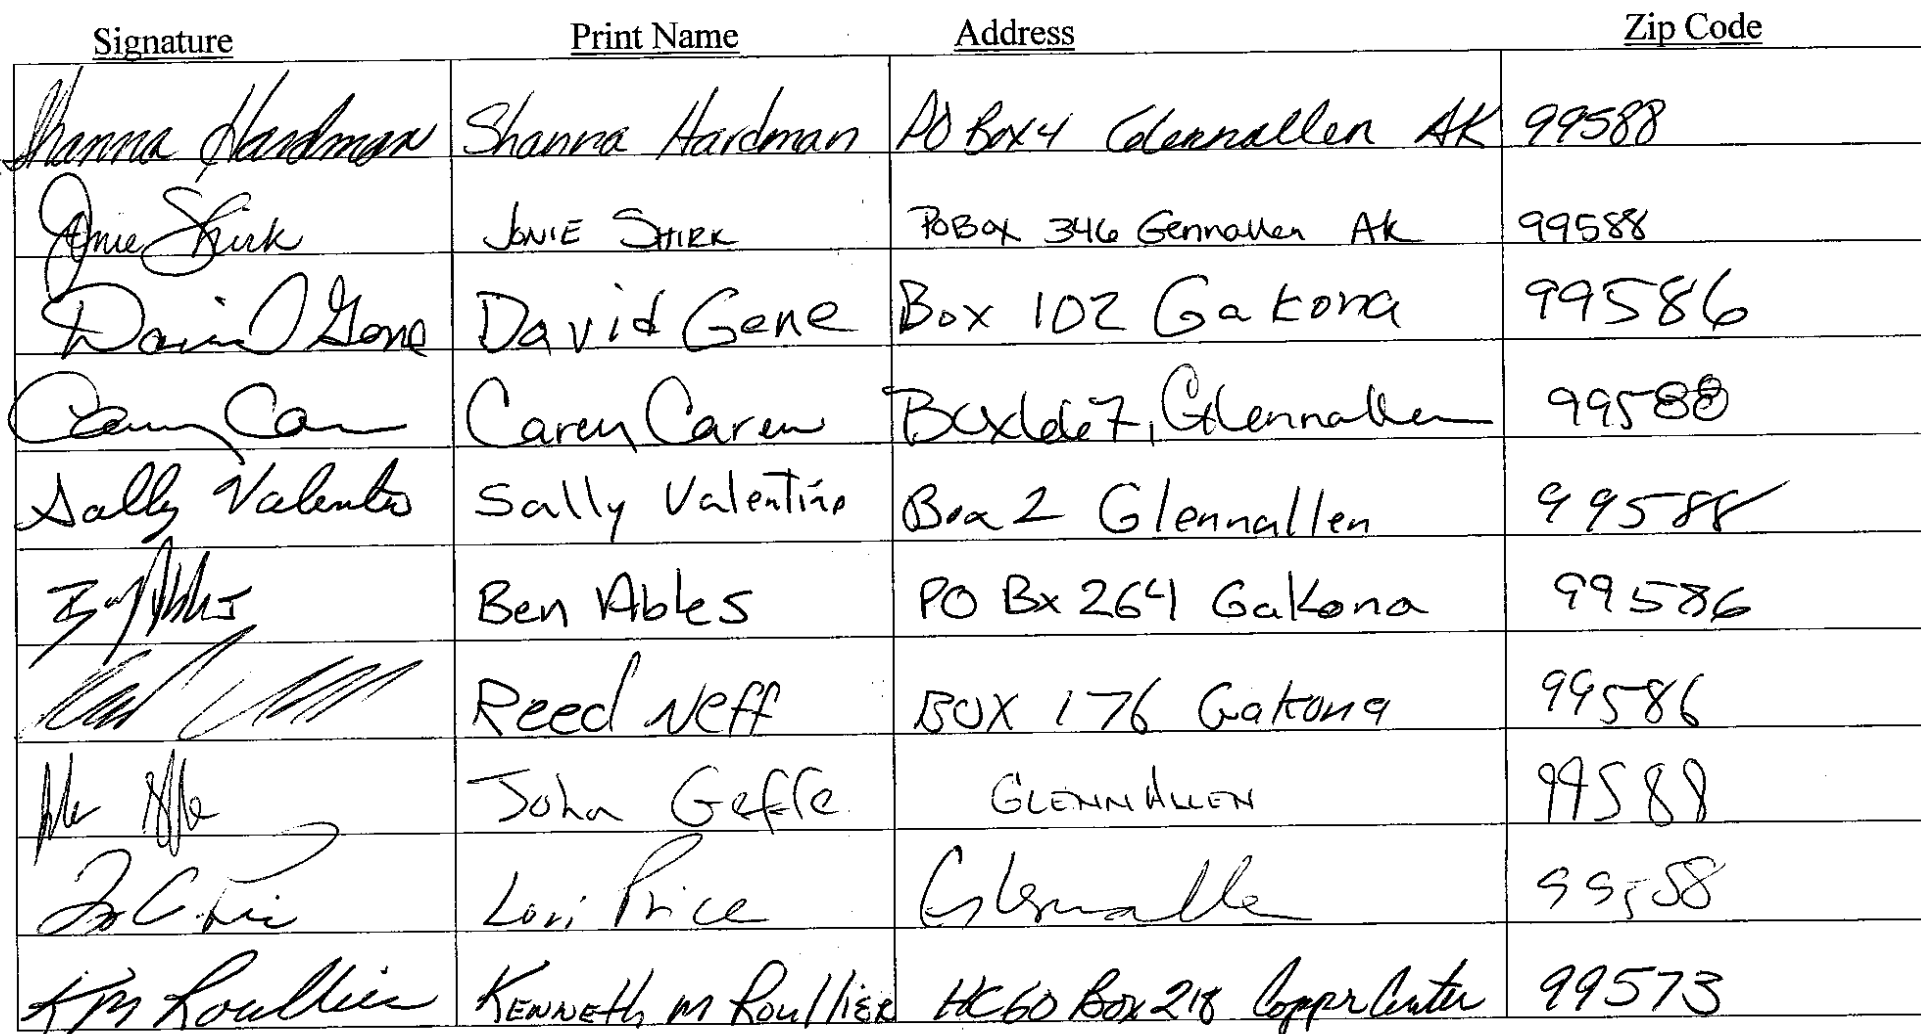 Signature Print Name Address Zip Code
Shanna Hardman Shanna Hardman PO Box 4 Glennallen AK 99588
Jonie Shirk JONIE SHIRK PO BOX 346 Gennallen AK 99588
David Gene David Gene Box 102 Gakona 99586
Carey Caren Box 667, Glennallen 99588
Sally Valentino Sally Valentino Box 2 Glennallen 99588
Ben Ables PO Bx 264 Gakona 99586
Reed Neff BOX 176 Gakona 99586
John Geffe GLENNALLEN 99588
Lori Price Glennallen 99588
KM Roullier KENNETH M ROULLIER HC60 Box 218 Copper Center 99573